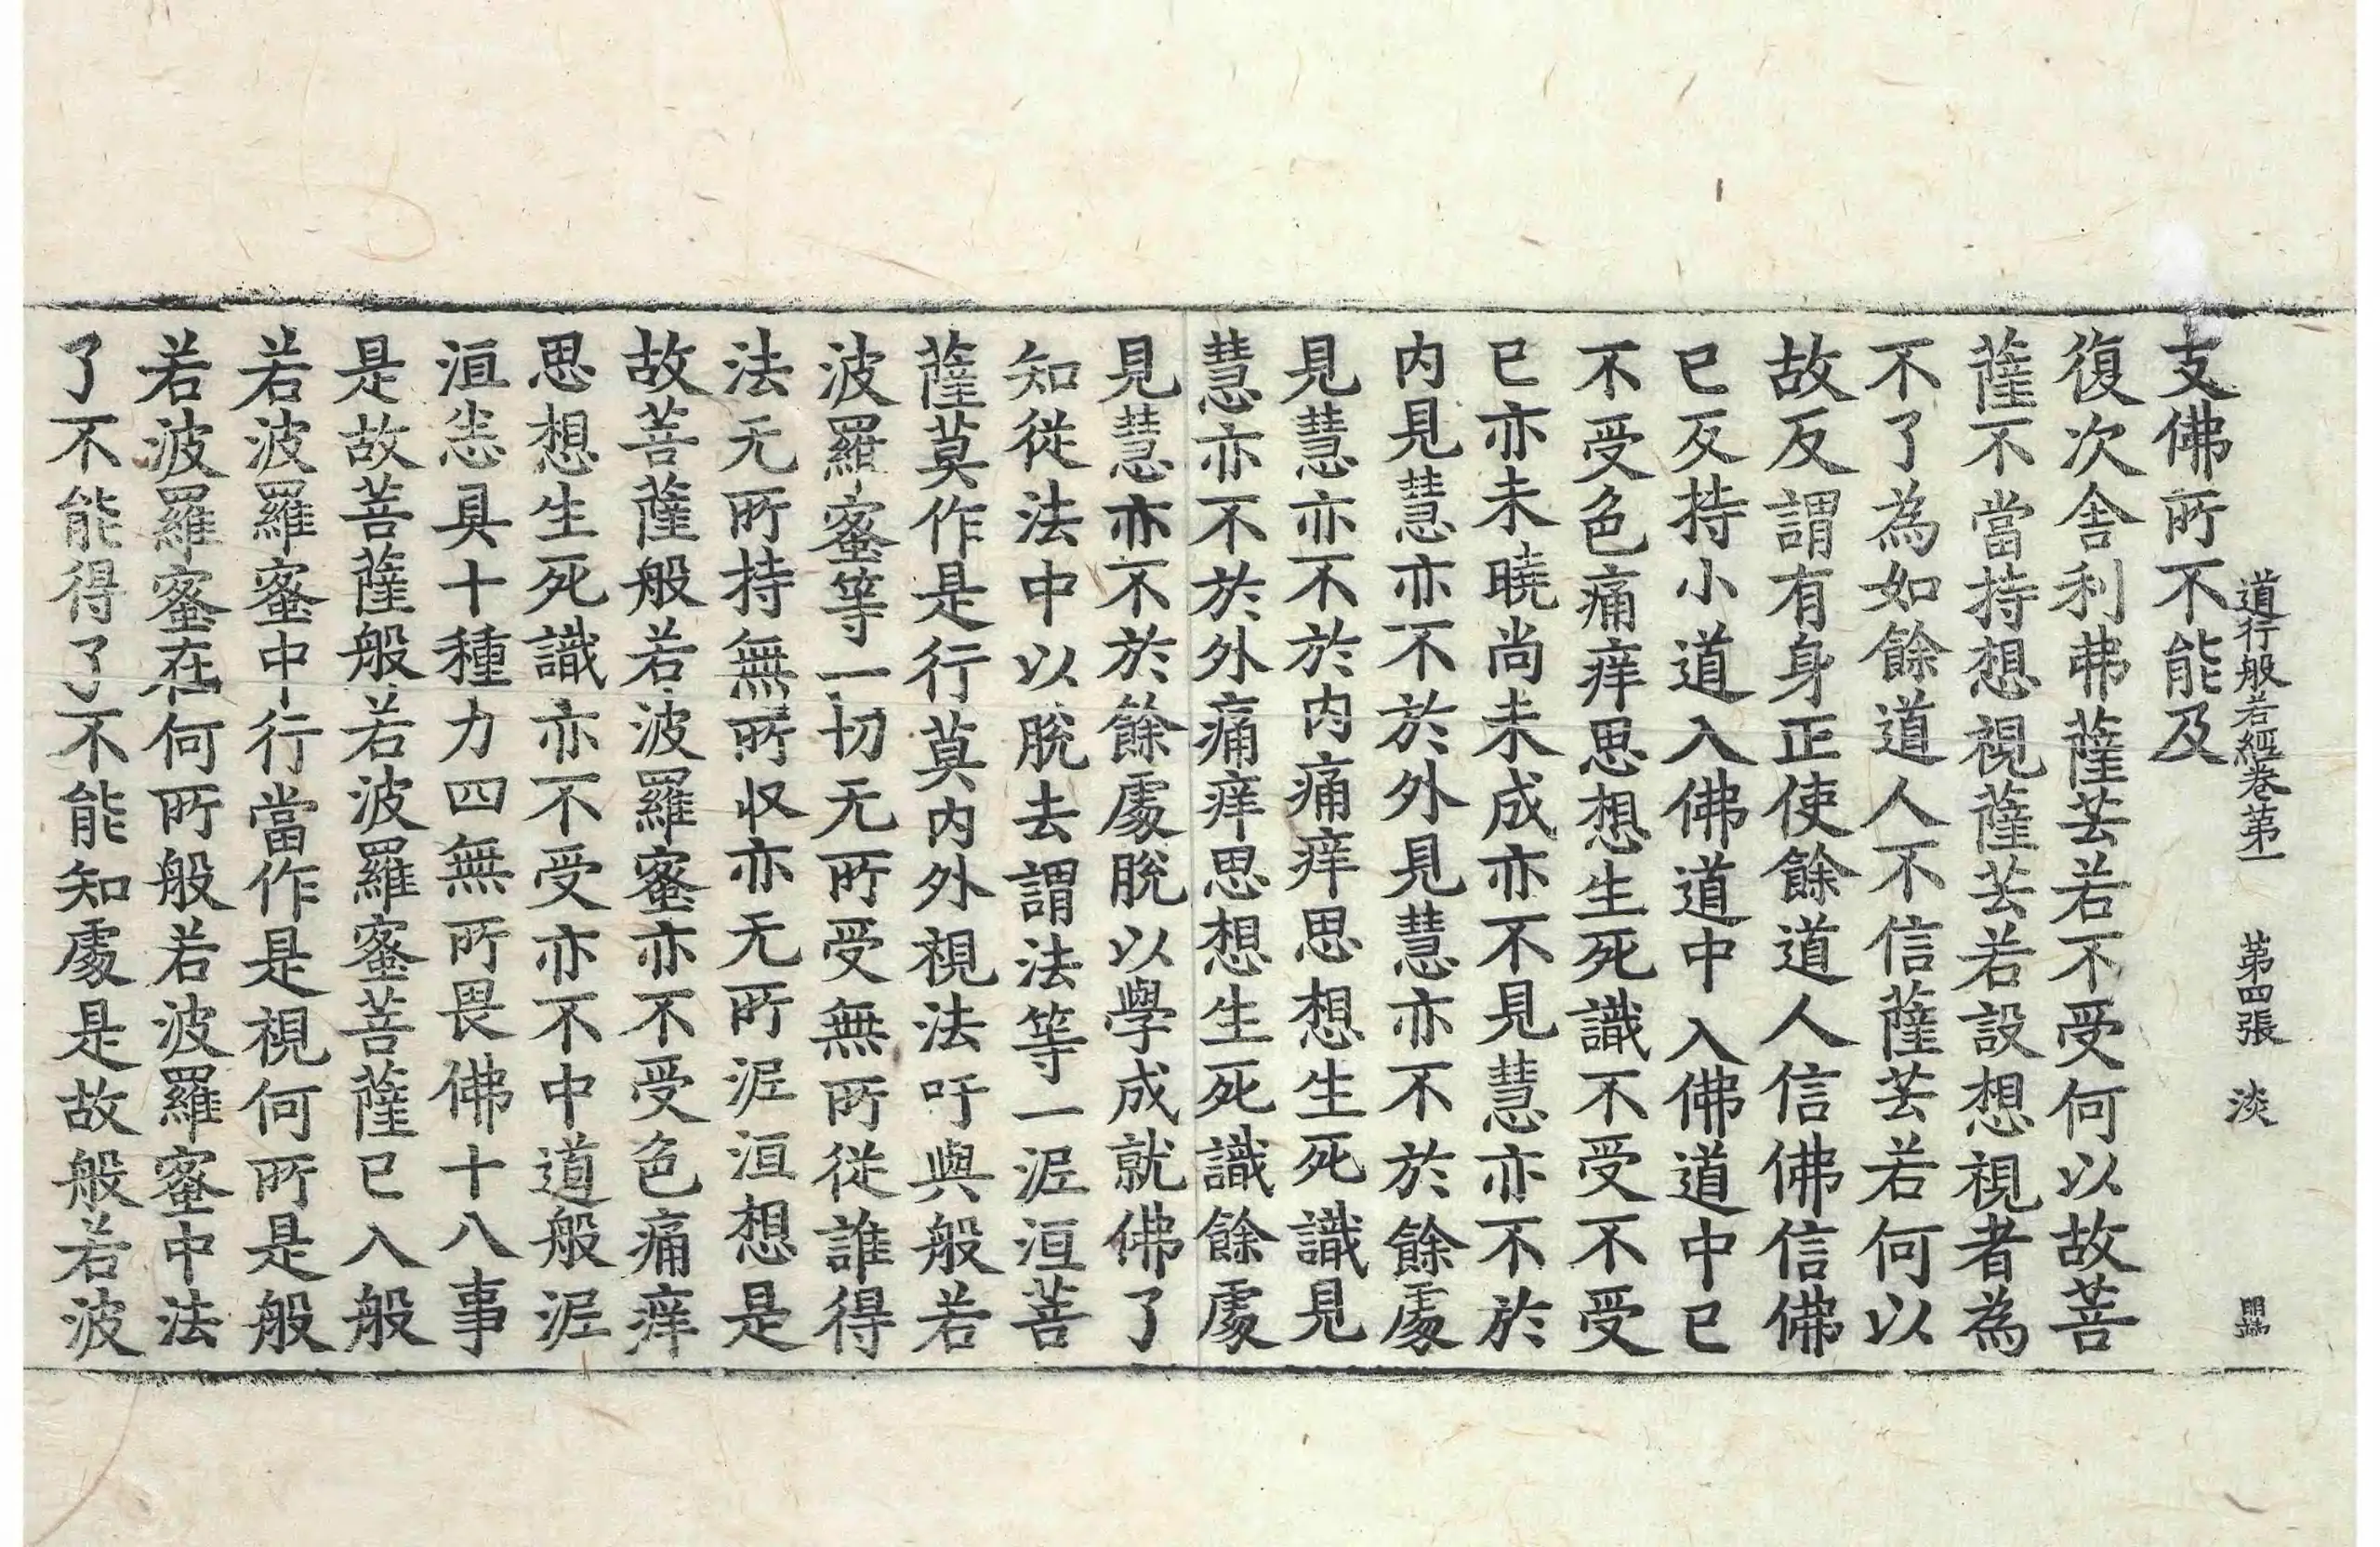 道行般若經卷第一 第四張 淡
支佛所不能及
復次舍利弗薩芸若不受何以故菩
薩不當持想視薩芸若設想視者為
不了為如餘道人不信薩芸若何以
故反謂有身正使餘道人信佛信佛
已反持小道入佛道中入佛道中已
不受色痛痒思想生死識不受不受
已亦未曉尚未成亦不見慧亦不於
内見慧亦不於外見慧亦不於餘處
見慧亦不於内痛痒思想生死識見
慧亦不於外痛痒思想生死識餘處
見慧亦不於餘處脫以學成就佛了
知從法中以脫去謂法等一泥洹菩
薩莫作是行莫内外視法吁與般若
波羅蜜等一切无所受無所從誰得
法无所持無所収亦无所泥洹想是
故菩薩般若波羅蜜亦不受色痛痒
思想生死識亦不受亦不中道般泥
洹恙具十種力四無所畏佛十八事
是故菩薩般若波羅蜜菩薩已入般
若波羅蜜中行當作是視何所是般
若波羅蜜在何所般若波羅蜜中法
了不能得了不能知處是故般若波